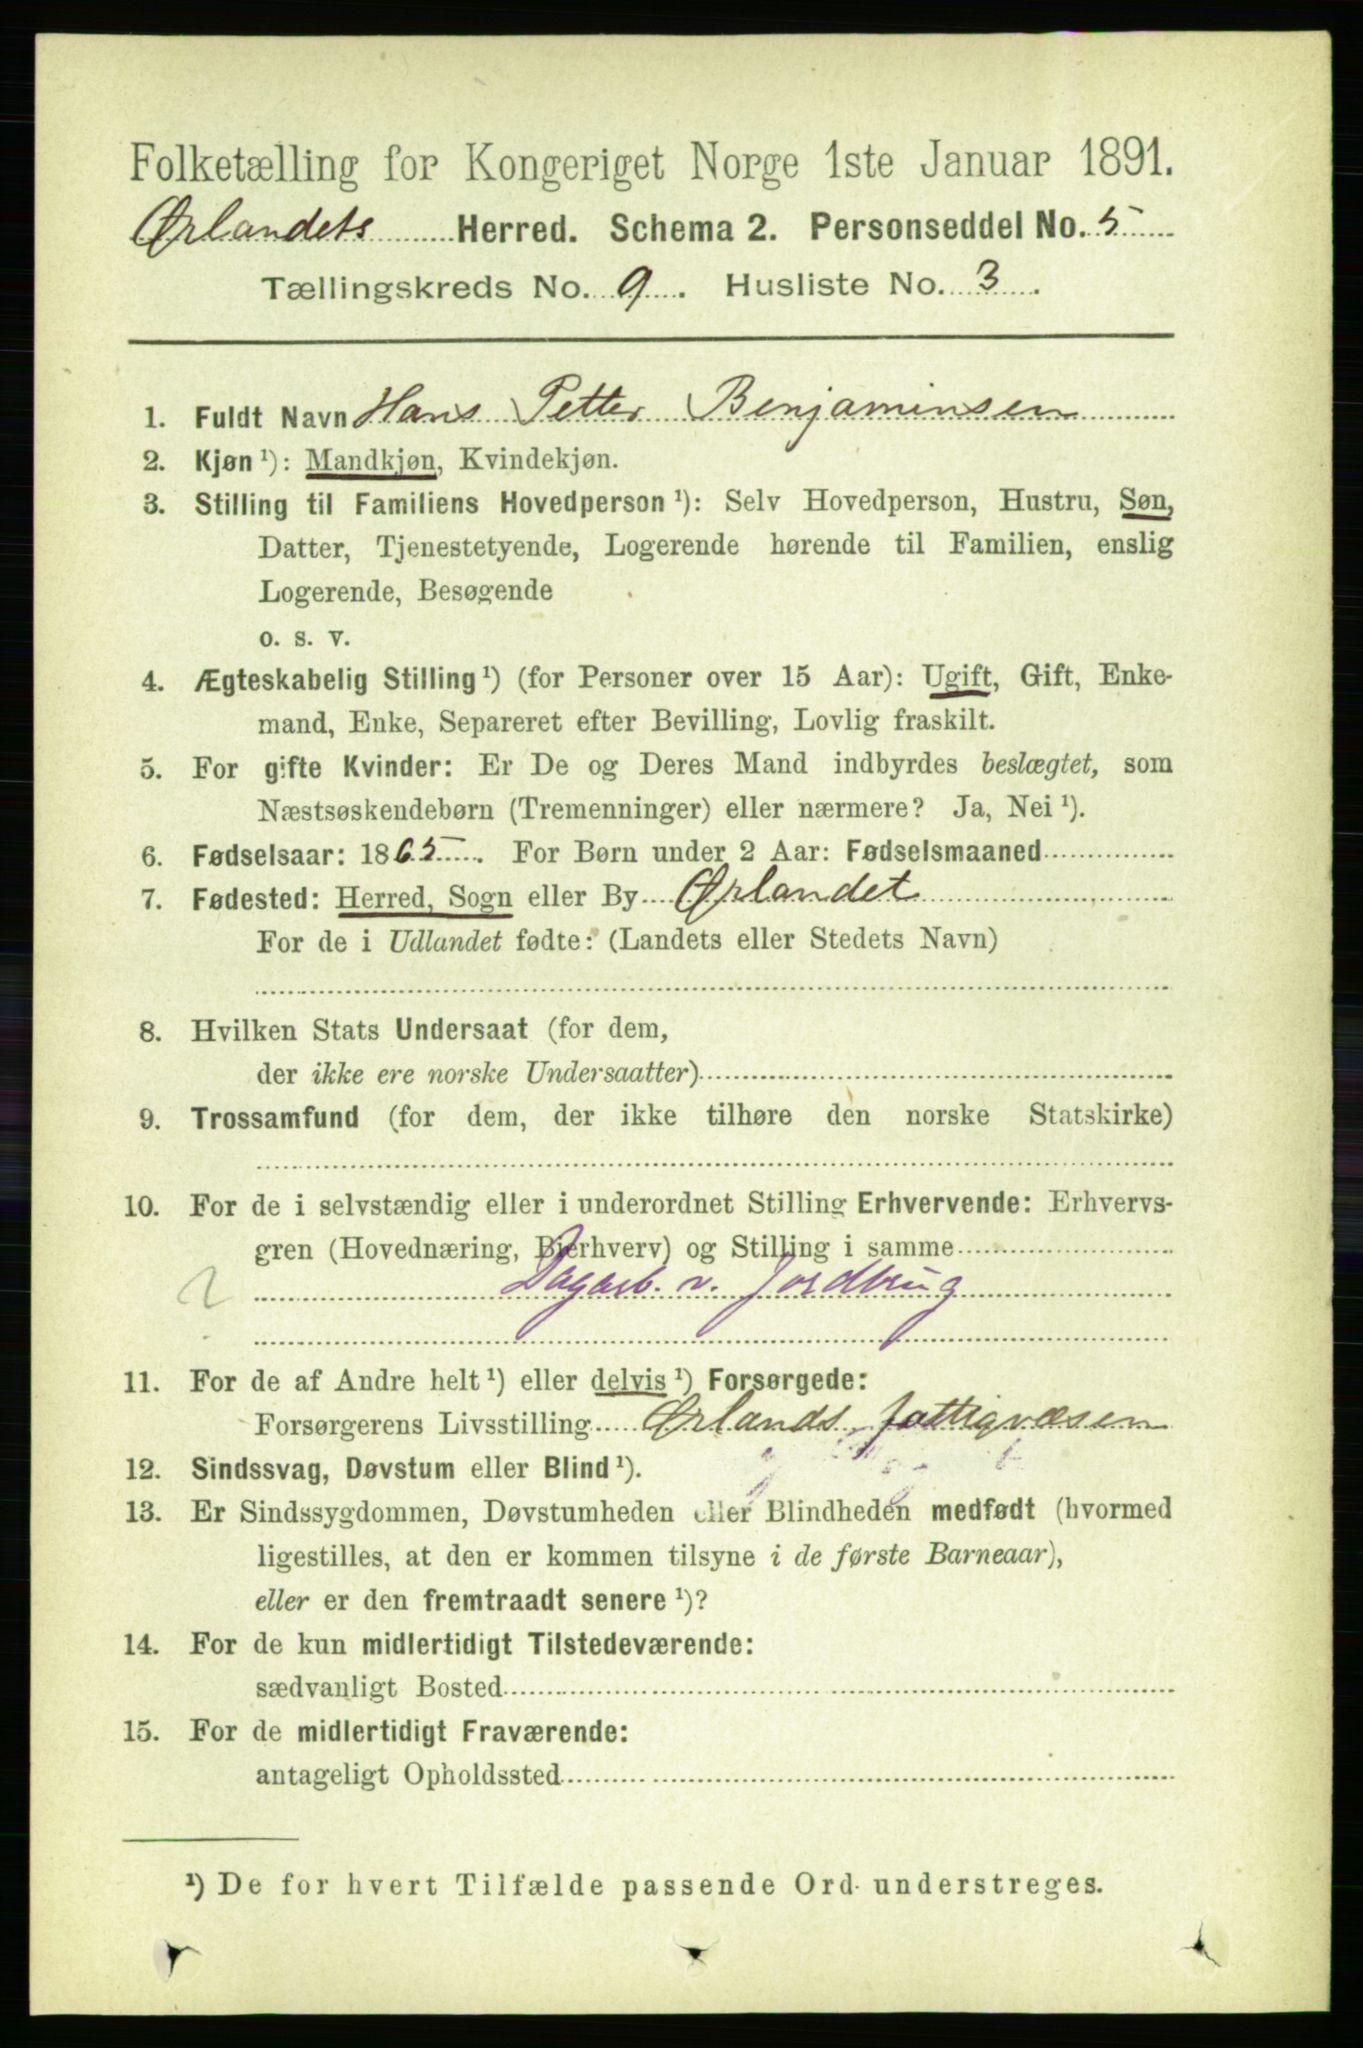 Folketælling for Kongeriget Norge 1ste Januar 1891.
Ørlandets Herred. Schema 2. Personseddel No. 5
Tællingskreds No. 9. Husliste No. 3.
1. Fuldt Navn Hans Petter Benjaminsen
2. Kjøn ¹): Mandkjøn, Kvindekjøn.
3. Stilling til Familiens Hovedperson ¹): Selv Hovedperson, Hustru, Søn,
Datter, Tjenestetyende, Logerende hørende til Familien, enslig
Logerende, Besøgende
o. s. v.
4. Ægteskabelig Stilling ¹) (for Personer over 15 Aar): Ugift, Gift, Enke-
mand, Enke, Separeret efter Bevilling, Lovlig fraskilt.
5. For gifte Kvinder: Er De og Deres Mand indbyrdes beslægtet, som
Næstsøskendebørn (Tremenninger) eller nærmere? Ja, Nei ¹).
6. Fødselsaar: 1865. For Børn under 2 Aar: Fødselsmaaned
7. Fødested: Herred, Sogn eller By Ørlandet
For de i Udlandet fødte: (Landets eller Stedets Navn)
8. Hvilken Stats Undersaat (for dem,
der ikke ere norske Undersaatter)
9. Trossamfund (for dem, der ikke tilhøre den norske Statskirke)
10. For de i selvstændig eller i underordnet Stilling Erhvervende: Erhvervs-
gren (Hovednæring, Bierhverv) og Stilling i samme
Dagarb. v. Jordbrug
11. For de af Andre helt ¹) eller delvis ¹) Forsørgede:
Forsørgerens Livsstilling Ørlands fattigvæsen
12. Sindssvag, Døvstum eller Blind ¹).
13. Er Sindssygdommen, Døvstumheden eller Blindheden medfødt (hvormed
ligestilles, at den er kommen tilsyne i de første Barneaar),
eller er den fremtraadt senere ¹)?
14. For de kun midlertidigt Tilstedeværende:
sædvanligt Bosted
15. For de midlertidigt Fraværende:
antageligt Opholdssted
¹) De for hvert Tilfælde passende Ord understreges.